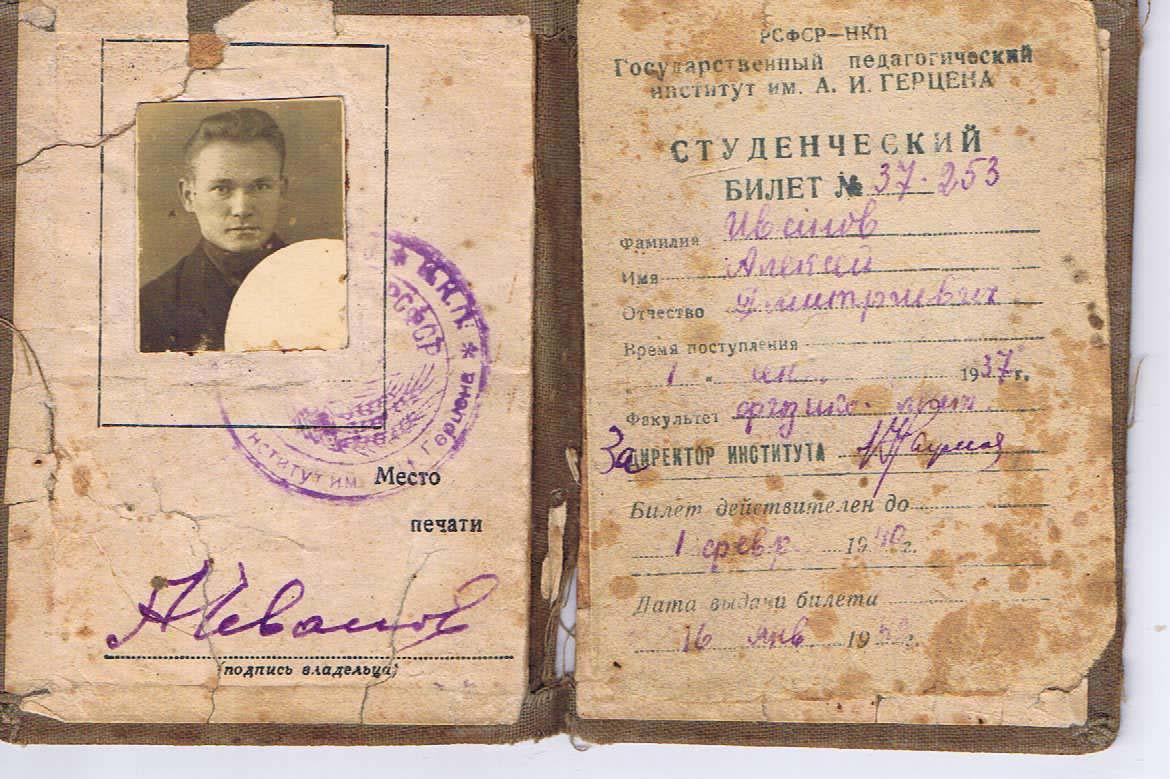 ★ Н.К.П. ★
РСФСР
институт им. Герцена
Место
печати
АИванов
(подпись владельца)
РСФСР—НКП
Государственный педагогический
институт им. А. И. ГЕРЦЕНА
СТУДЕНЧЕСКИЙ
БИЛЕТ № 37-253
Фамилия Иванов
Имя Алексей
Отчество Дмитриевич
Время поступления
1 " сен. 1937 г.
Факультет физико-мат.
За ДИРЕКТОР ИНСТИТУТА
Билет действителен до
1 февр. 1940 г.
Дата выдачи билета
16 янв 19 г.